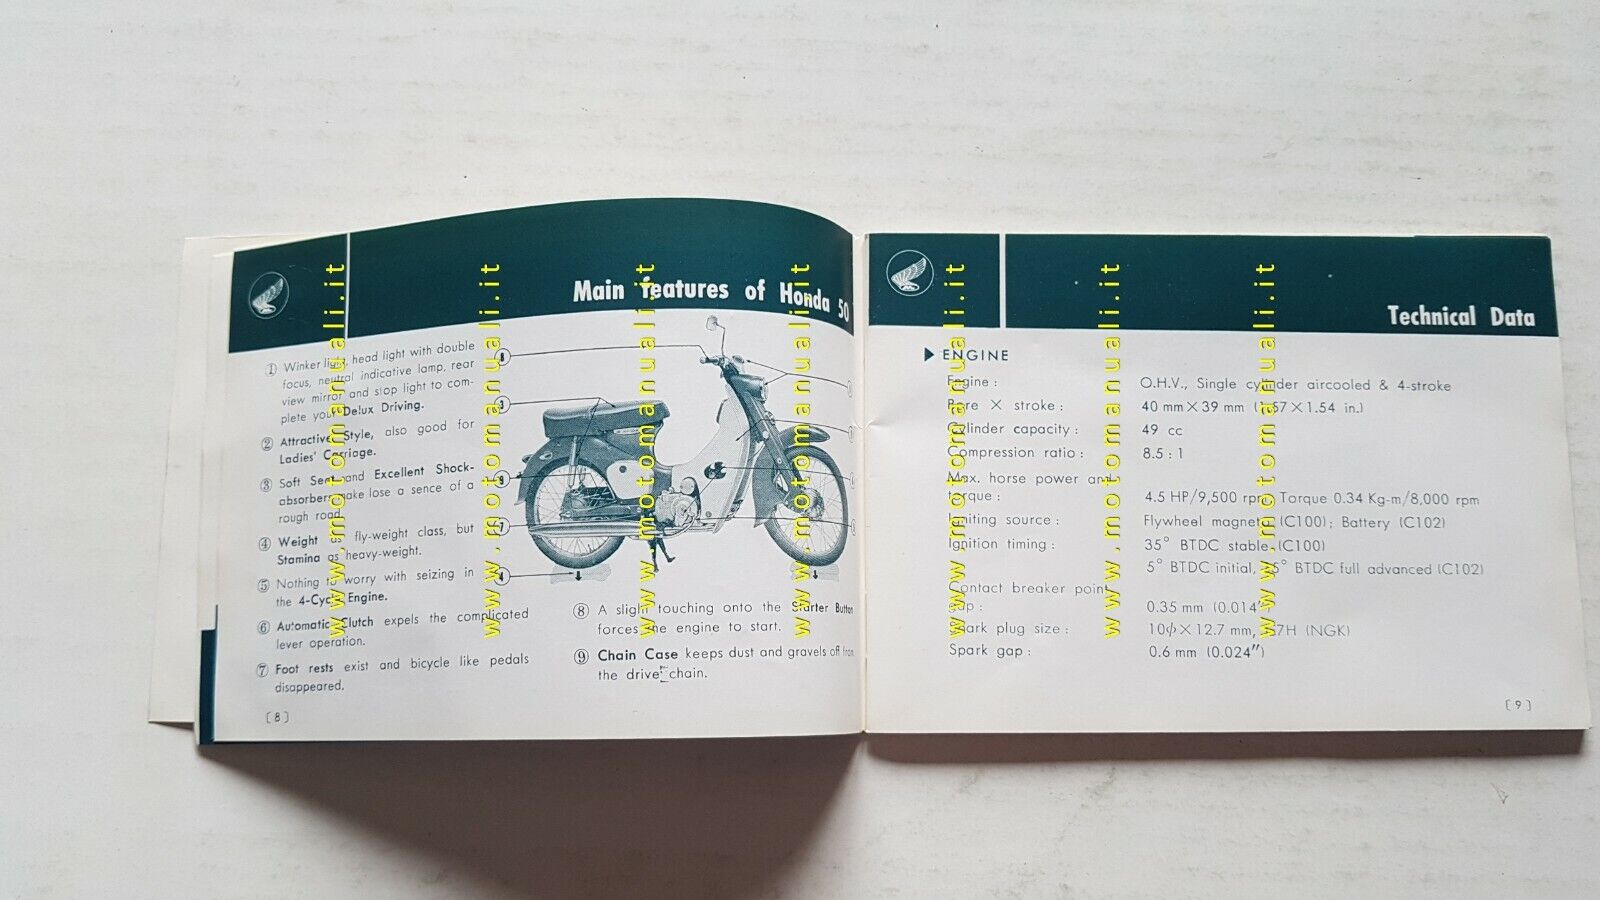 Main features of Honda 50
① Winker light, head light with double
focus, neutral indicative lamp, rear
view mirror and stop light to com-
plete your Delux Driving.
② Attractive Style, also good for
Ladies' Carriage.
③ Soft Seat and Excellent Shock-
absorber make lose a sence of a
rough road.
④ Weight as fly-weight class, but
Stamina as heavy-weight.
⑤ Nothing to worry with seizing in
the 4-Cycle Engine.
⑥ Automatic Clutch expels the complicated
lever operation.
⑦ Foot rests exist and bicycle like pedals
disappeared.
6
3
9
7
4
⑧ A slight touching onto the Starter Button
forces the engine to start.
⑨ Chain Case keeps dust and gravels off from
the drive chain.
[8]
Technical Data
▶ ENGINE
Engine : O.H.V., Single cylinder aircooled & 4-stroke
Bore × stroke : 40 mm × 39 mm (1.57 × 1.54 in.)
Cylinder capacity : 49 cc
Compression ratio : 8.5 : 1
Max. horse power and
torque : 4.5 HP/9,500 rpm, Torque 0.34 Kg-m/8,000 rpm
Igniting source : Flywheel magneto (C100) ; Battery (C102)
Ignition timing : 35° BTDC stable (C100)
5° BTDC initial, BTDC full advanced (C102)
Contact breaker point
gap : 0.35 mm (0.014″)
Spark plug size : 10ϕ × 12.7 mm, (NGK)
Spark gap : 0.6 mm (0.024″)
[9]
www.motomanuali.it
www.motomanuali.it
www.motomanuali.it
www.motomanuali.it
www.motomanuali.it
www.motomanuali.it
www.motomanuali.it